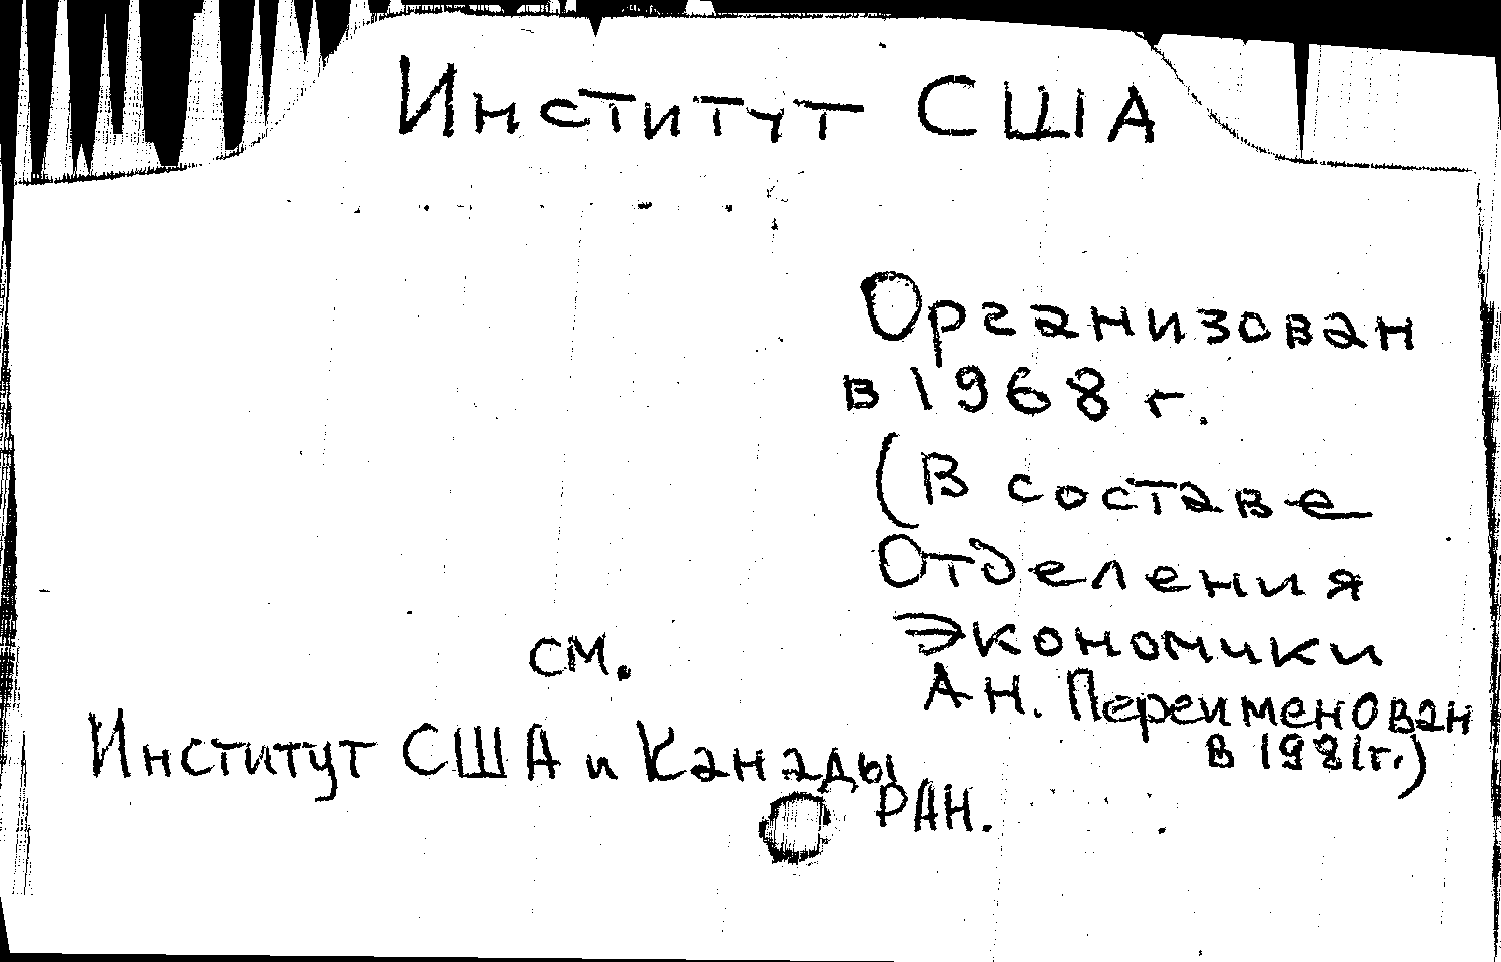 Институт США
Организован
в 1968 г.
(В составе
Отделения
Экономики
АН. Переименован
в 1981г.)
см.
Институт США и Канады
РАН.